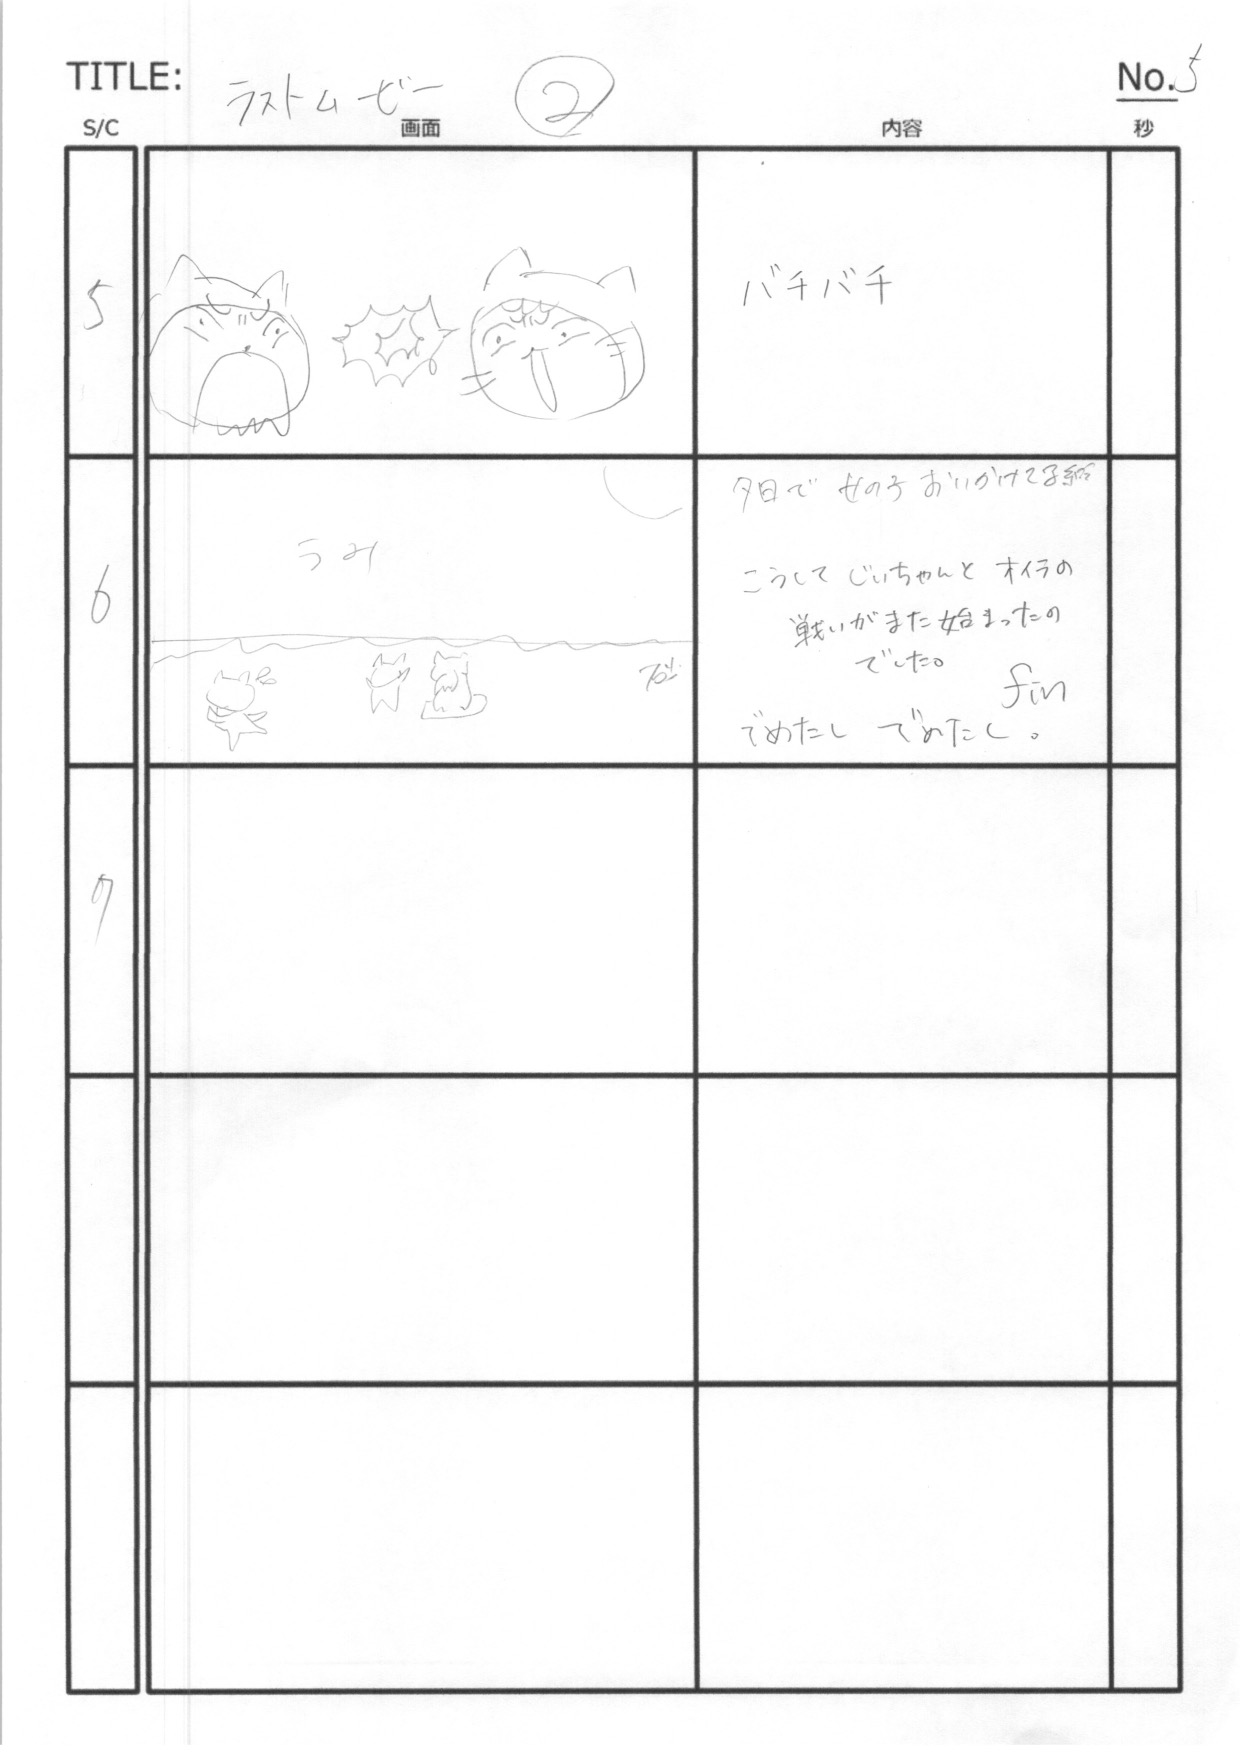 TITLE: ラストムービー ②
No.5
S/C 画面 内容 秒
5
バチバチ
6
うみ
夕日で 女の子 おいかけてる絵
こうして じいちゃんと オイラの
戦いがまた始まったの
でした。
fin
でめたし でめたし。
7